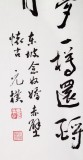 夢一樽還酹
东坡念奴嬌赤壁
懷古